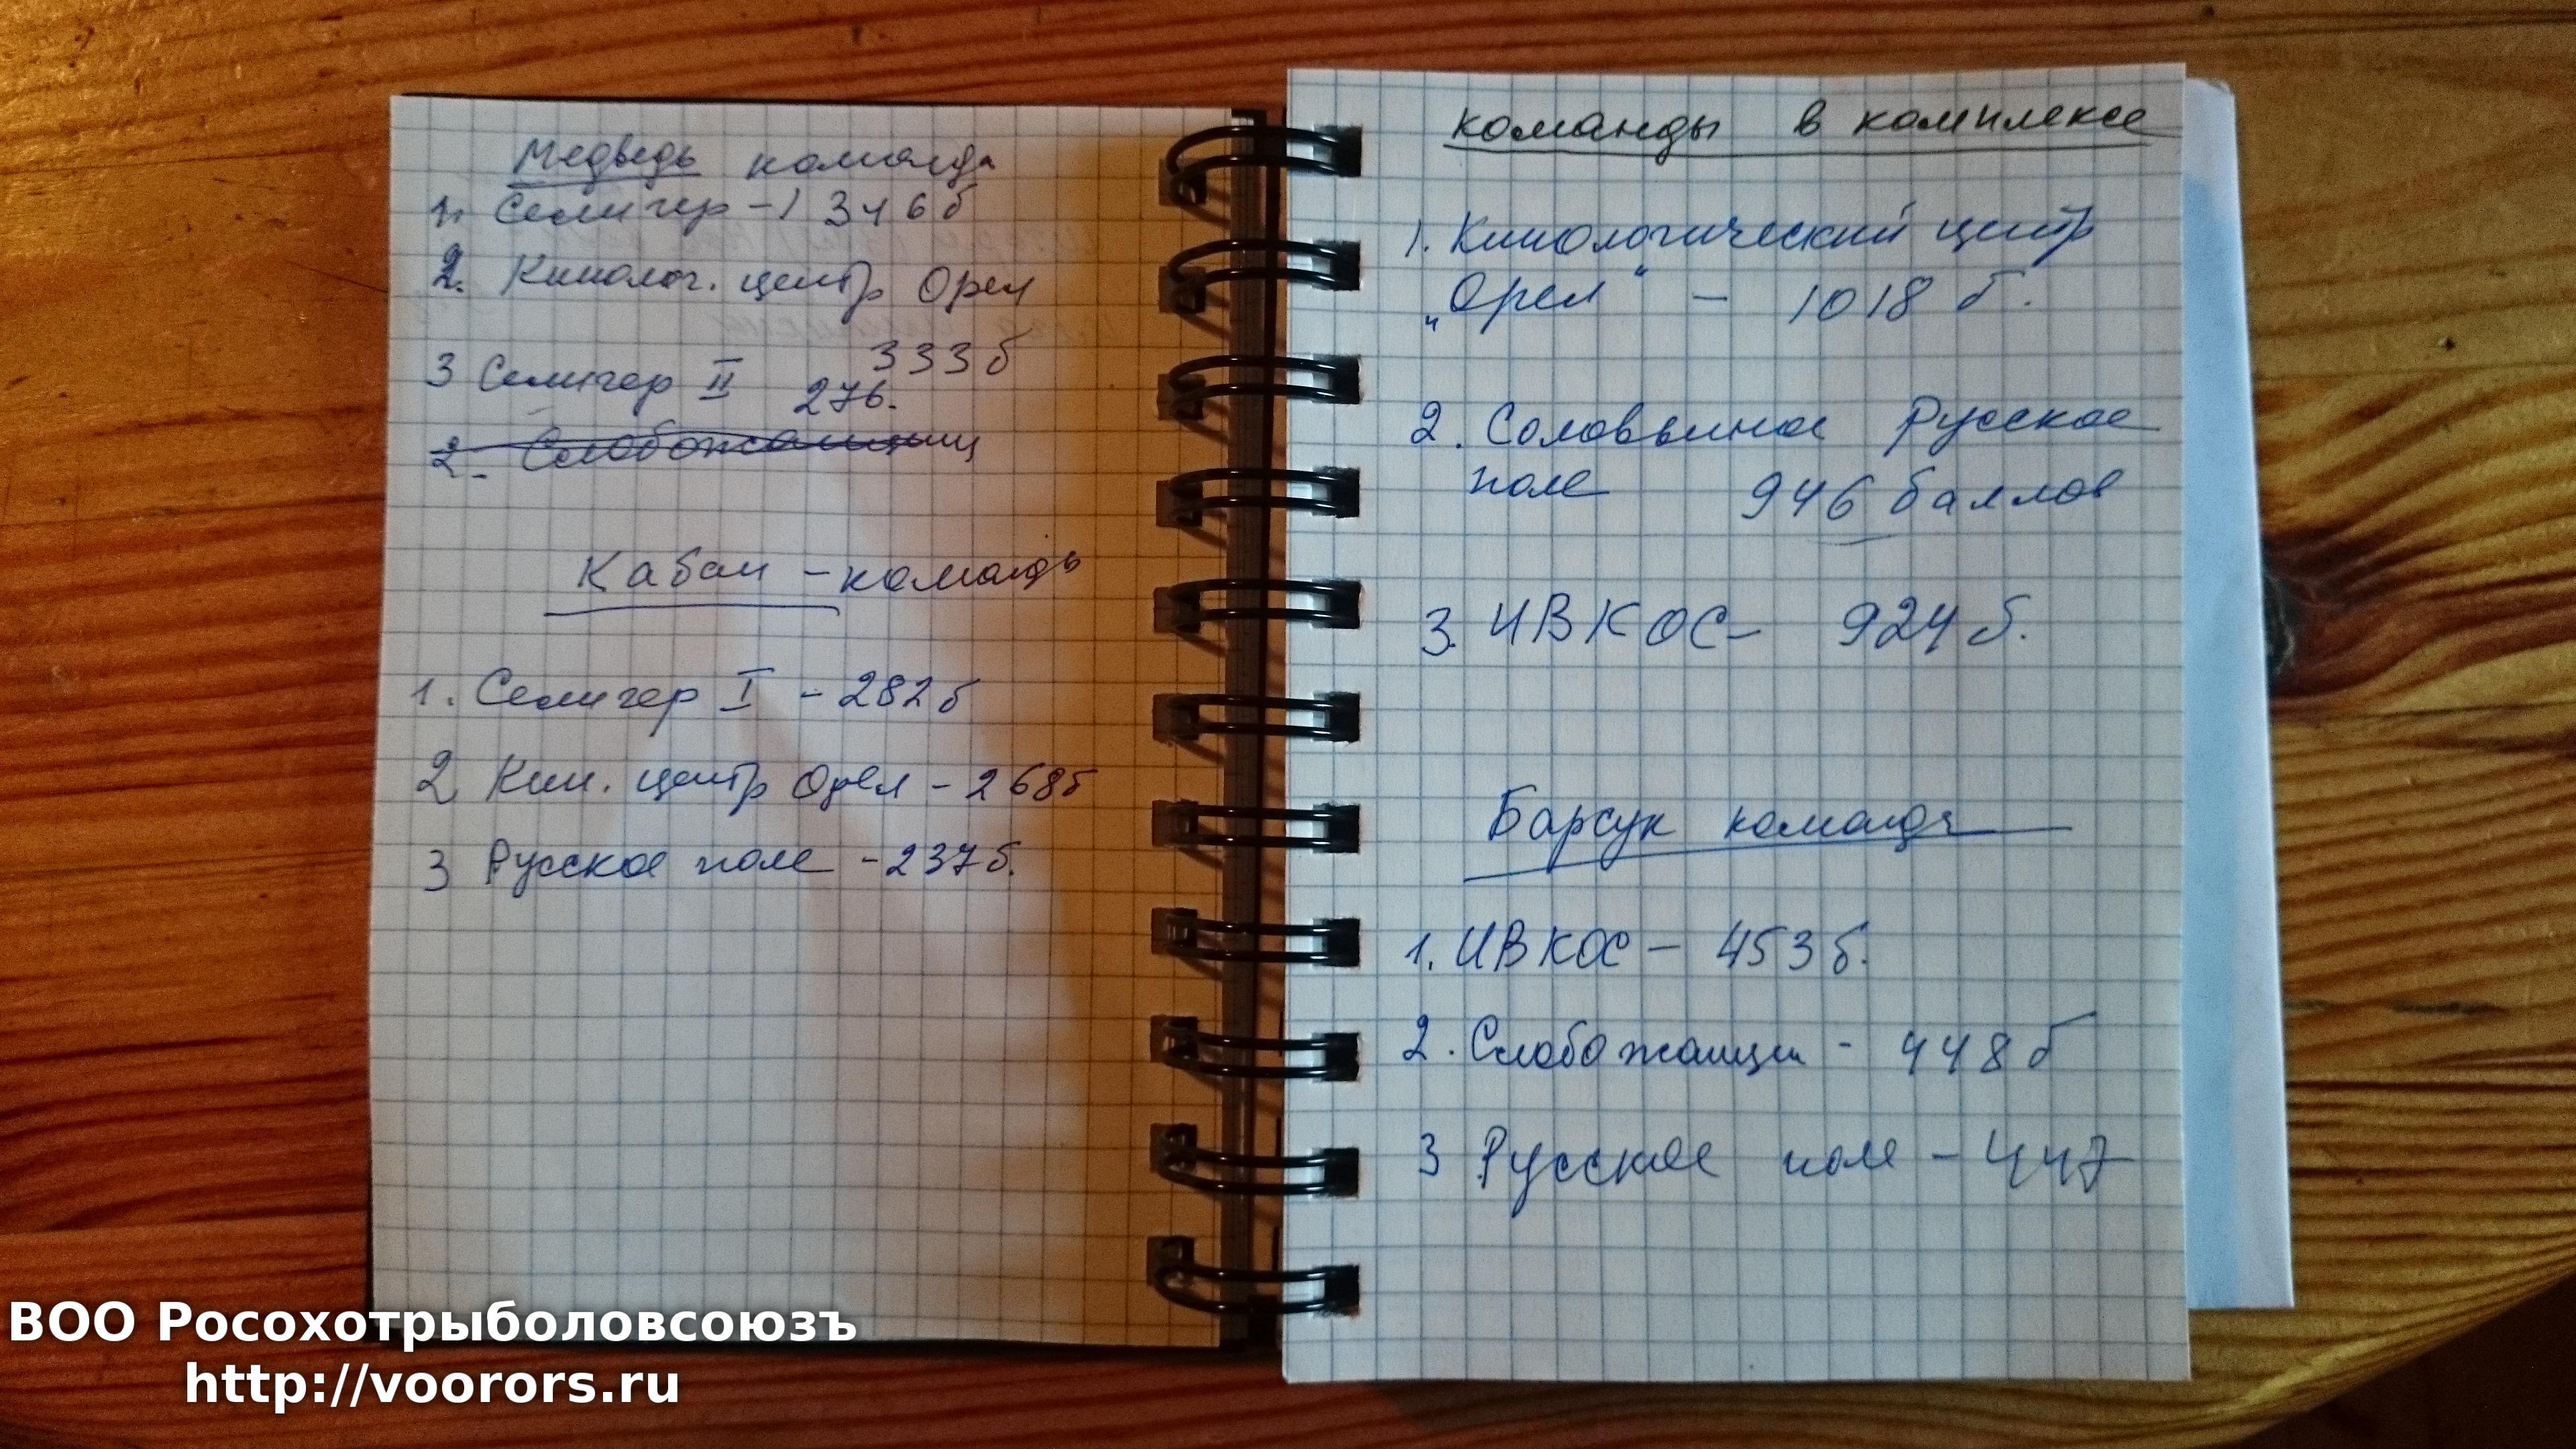 Медведь команда
1. Селигер – 1 346 б
2. Кинолог. центр Орел
333 б
3 Селигер II 276.
2. Слобожанщ
Кабан – команда
1. Селигер I – 282 б
2 Кин. центр Орел – 268 б
3 Русское поле – 237 б.
команды в комплексе
1. Кинологический центр
„Орел“ – 1018 б.
2. Соловьиное Русское
поле 946 баллов
3. ИВКОС – 924 б.
Барсук команда
1. ИВКОС – 453 б.
2. Слобожанщи - 448 б
3 Русское поле – 447
ВОО Росохотрыболовсоюзъ
http://voorors.ru